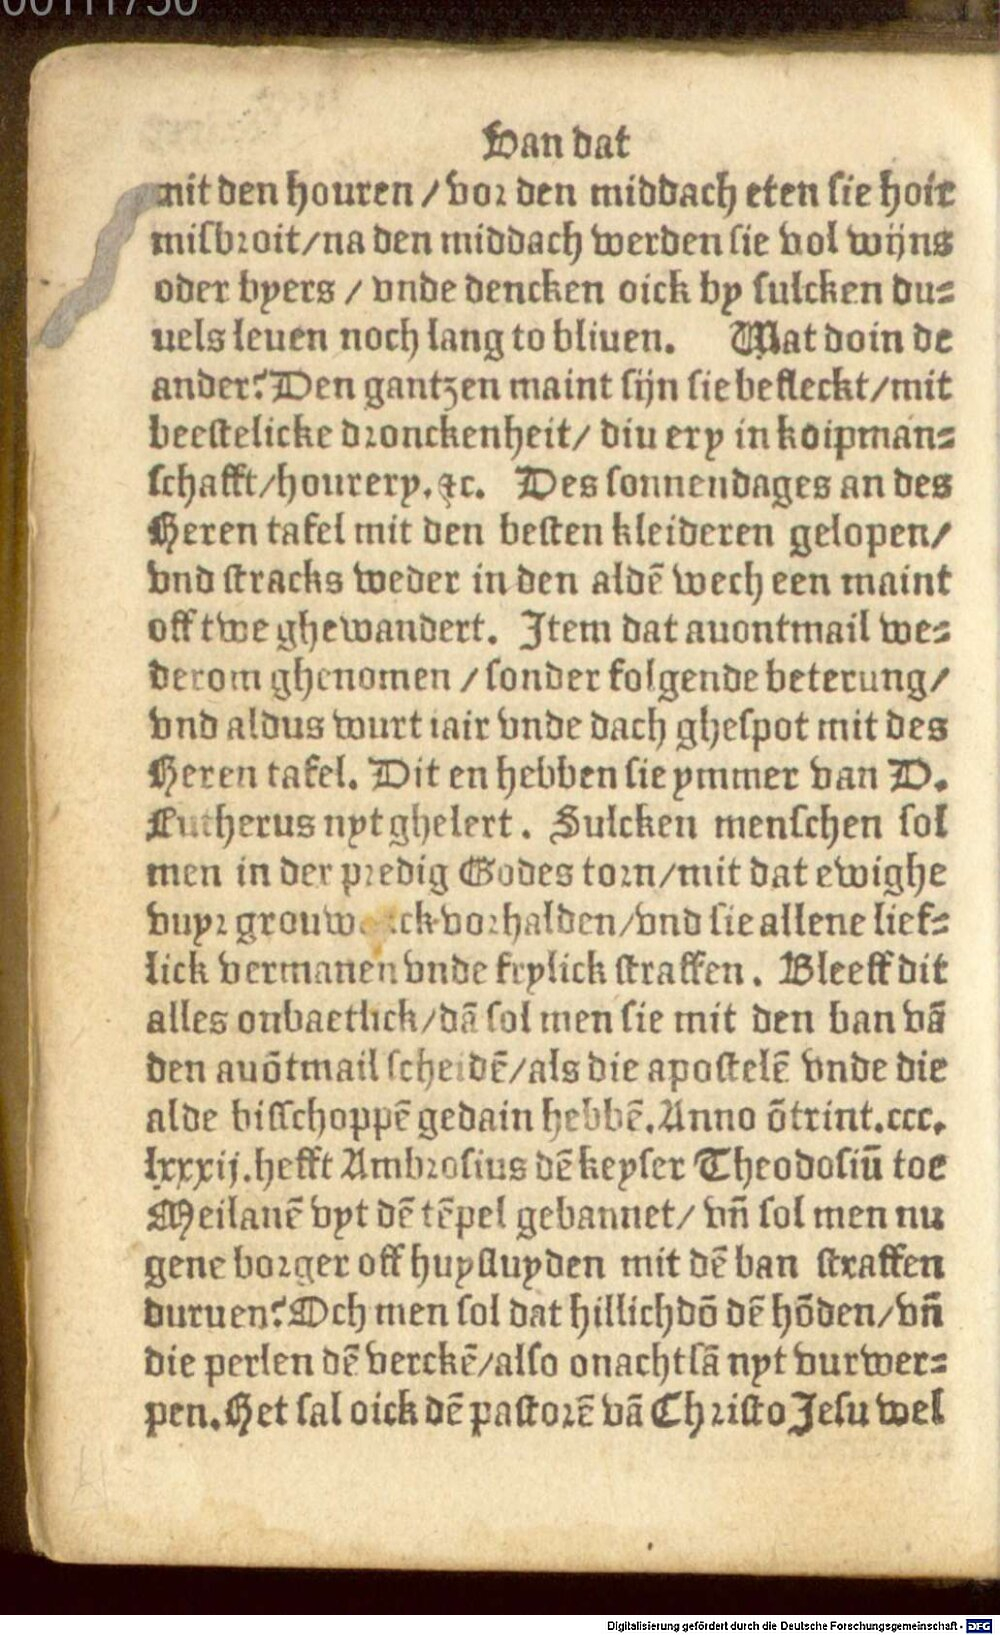 00111750
Van dat
mit den houren / vor den middach eten sie hoir
misbroit/na den middach werden sie vol wijns
oder byers / vnde dencken oick by sulcken du⸗
uels leuen noch lang to bliuen. Wat doin de
ander? Den gantzen maint sijn sie befleckt/mit
beestelicke dronckenheit/ diuery in koipman⸗
schafft/hourery.⁊c. Des sonnendages an des
Heren tafel mit den besten kleideren gelopen/
vnd stracks weder in den aldē wech een maint
off twe ghewandert. Item dat auontmail we⸗
derom ghenomen / sonder folgende beterung/
vnd aldus wurt iair vnde dach ghespot mit des
Heren tafel. Dit en hebben sie ymmer van D.
Lutherus nyt ghelert. Sulcken menschen sol
men in der predig Godes torn/mit dat ewighe
vuyr vorhalden/vnd sie allene lief⸗
lick vermanen vnde frylick straffen. Bleeff dit
alles onbaetlick/dā sol men sie mit den ban vā
den auōtmail scheidē/als die apostelē vnde die
alde bisschoppē gedain hebbē. Anno ōtrint.ccc.
lxxxij.hefft Ambrosius dē keyser Theodosiū toe
Meilanē vyt dē tēpel gebannet/ vn̄ sol men nu
gene borger off huysluyden mit dē ban straffen
duruen? Och men sol dat hillichdō dē hōden/vn̄
die perlen dē verckē/also onachtsā nyt vurwer⸗
pen. Het sal oick dē pastorē vā Christo Jesu wel
Digitalisierung gefördert durch die Deutsche Forschungsgemeinschaft - DFG